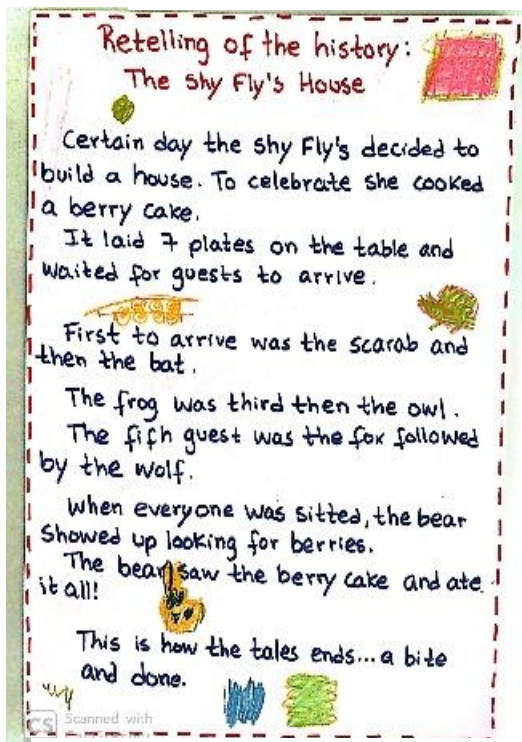 Retelling of the history:
The shy Fly's House
Certain day the shy Fly's decided to
build a house. To celebrate she cooked
a berry cake.
It laid 7 plates on the table and
waited for guests to arrive.
First to arrive was the scarab and
then the bat.
The frog was third then the owl.
The fifh guest was the fox followed
by the wolf.
When everyone was sitted, the bear
showed up looking for berries.
The bear saw the berry cake and ate
it all!
This is how the tales ends... a bite
and done.
CS Scanned with